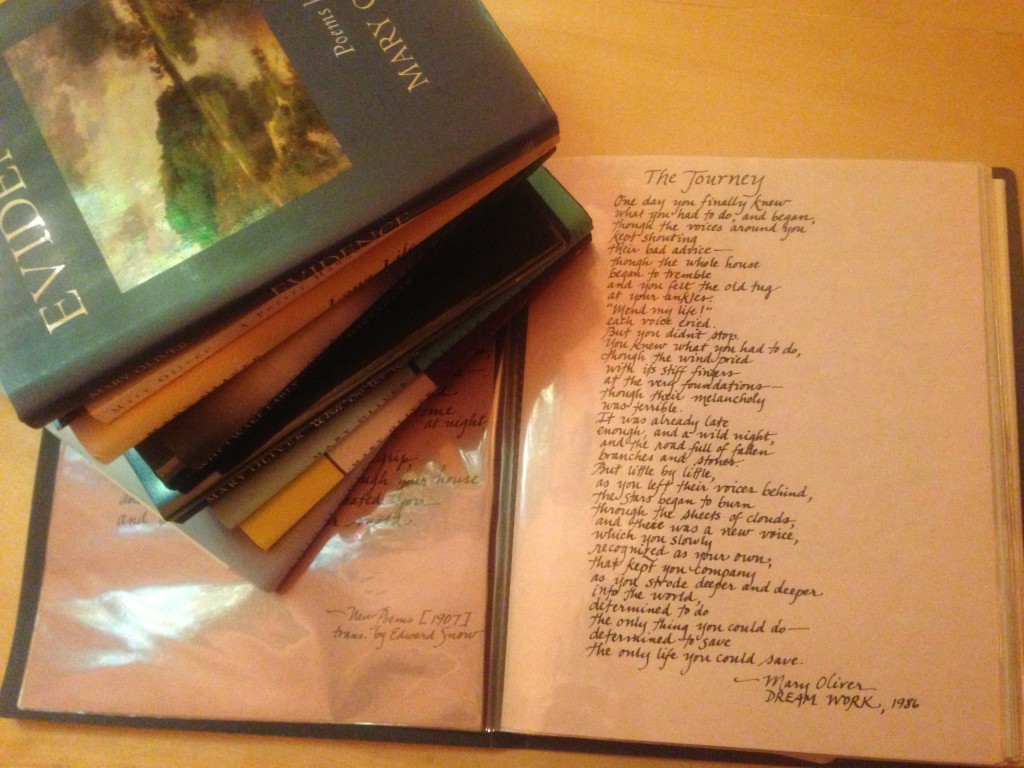 EVIDE
Poems
MARY O
EVIDENCE
MARY OLIVER
Mary Oliver
MARY OLIVER
ome
at night
ough your house
and
—New Poems [1907]
trans. by Edward Snow
The Journey
One day you finally knew
what you had to do, and began,
though the voices around you
kept shouting
their bad advice—
though the whole house
began to tremble
and you felt the old tug
at your ankles.
"Mend my life!"
each voice cried.
But you didn't stop.
You knew what you had to do,
though the wind pried
with its stiff fingers
at the very foundations—
though their melancholy
was terrible.
It was already late
enough, and a wild night,
and the road full of fallen
branches and stones.
But little by little,
as you left their voices behind,
the stars began to burn
through the sheets of clouds,
and there was a new voice,
which you slowly
recognized as your own,
that kept you company
as you strode deeper and deeper
into the world,
determined to do
the only thing you could do—
determined to save
the only life you could save.
—Mary Oliver
DREAM WORK, 1986